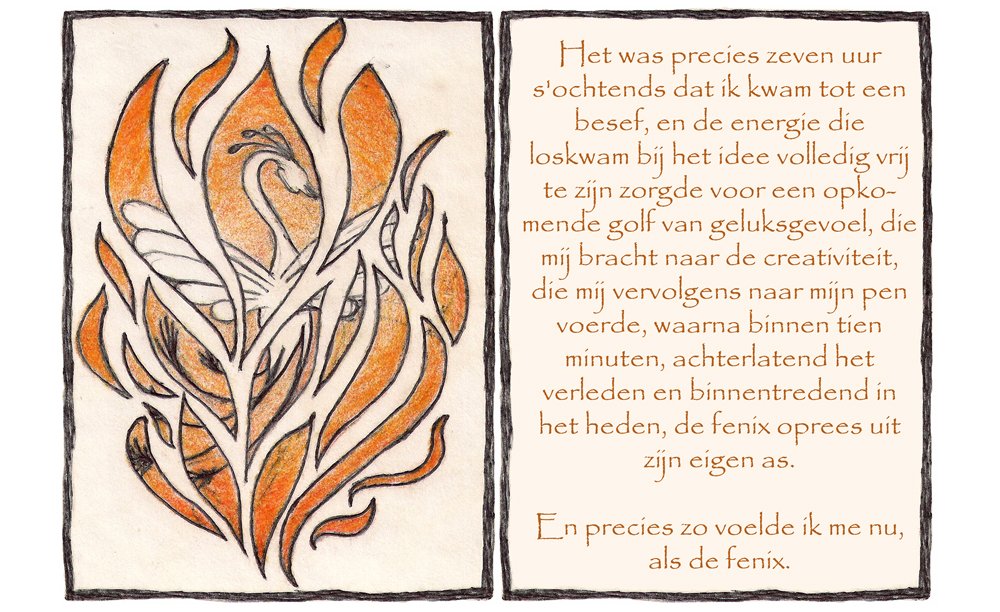 Het was precies zeven uur
s'ochtends dat ik kwam tot een
besef, en de energie die
loskwam bij het idee volledig vrij
te zijn zorgde voor een opko-
mende golf van geluksgevoel, die
mij bracht naar de creativiteit,
die mij vervolgens naar mijn pen
voerde, waarna binnen tien
minuten, achterlatend het
verleden en binnentredend in
het heden, de fenix oprees uit
zijn eigen as.

En precies zo voelde ik me nu,
als de fenix.